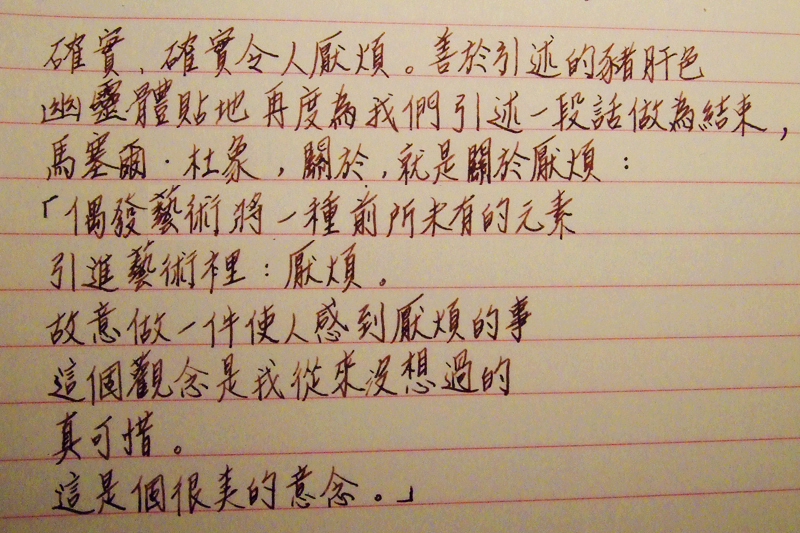 確實、確實令人厭煩。善於引述的豬肝色
幽靈體貼地再度為我們引述一段話做為結束，
馬塞爾·杜象，關於，就是關於厭煩：
「偶發藝術將一種前所未有的元素
引進藝術裡：厭煩。
故意做一件使人感到厭煩的事
這個觀念是我從來沒想過的
真可惜。
這是個很美的意念。」